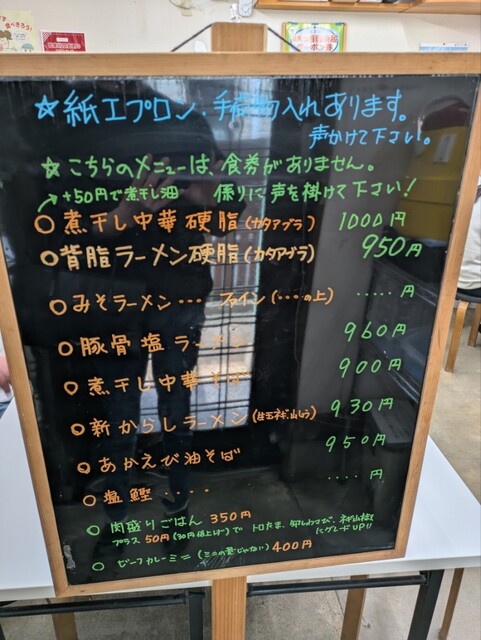 ☆紙エプロン・手荷物入れあります。
声かけて下さい。
☆こちらのメニューは、食券がありません。
+50円で煮干し油 係りに声を掛けて下さい!
○煮干し中華硬脂(カタアブラ) 1000円
○背脂ラーメン硬脂(カタアブラ) 950円
○みそラーメン・・・ ・・・・・円
○豚骨塩ラーメン 960円
○煮干し中華そば 900円
○新からしラーメン 930円
○あかえび油そば 950円
○塩鰹・・・・ ・・・・円
○肉盛りごはん 350円
プラス50円(30円値上げ)で トロたま、
○ビーフカレーミニ (ミニの量じゃない) 400円